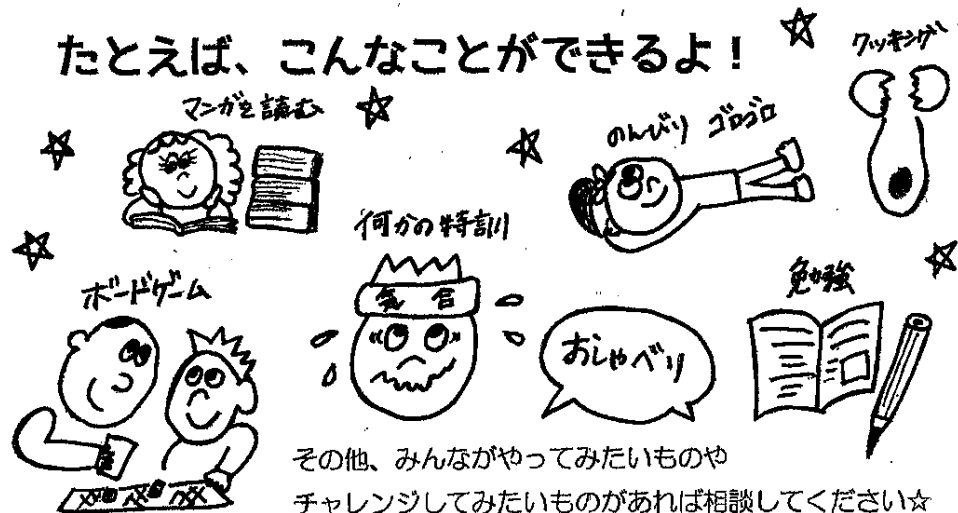 たとえば、こんなことができるよ！
クッキング
マンガを読む
のんびり ゴロゴロ
何かの特訓
気合
ボードゲーム
おしゃべり
勉強
その他、みんながやってみたいものや
チャレンジしてみたいものがあれば相談してください☆